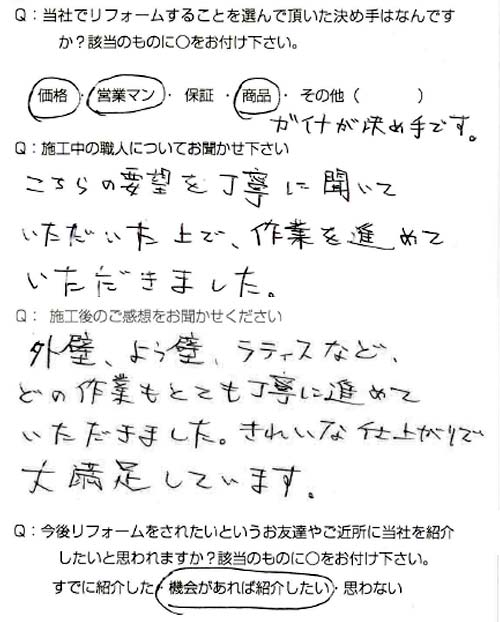 Q：当社でリフォームすることを選んで頂いた決め手はなんです
か？該当のものに〇をお付け下さい。
価格・営業マン・保証・商品・その他（　　　）
ガイナが決め手です。
Q：施工中の職人についてお聞かせ下さい
こちらの要望を丁寧に聞いて
いただいた上で、作業を進めて
いただきました。
Q： 施工後のご感想をお聞かせください
外壁、よう壁、ラティスなど、
どの作業もとても丁寧に進めて
いただきました。きれいな仕上がりで
大満足しています。
Q：今後リフォームをされたいというお友達やご近所に当社を紹介
したいと思われますか？該当のものに〇をお付け下さい。
すでに紹介した・機会があれば紹介したい・思わない